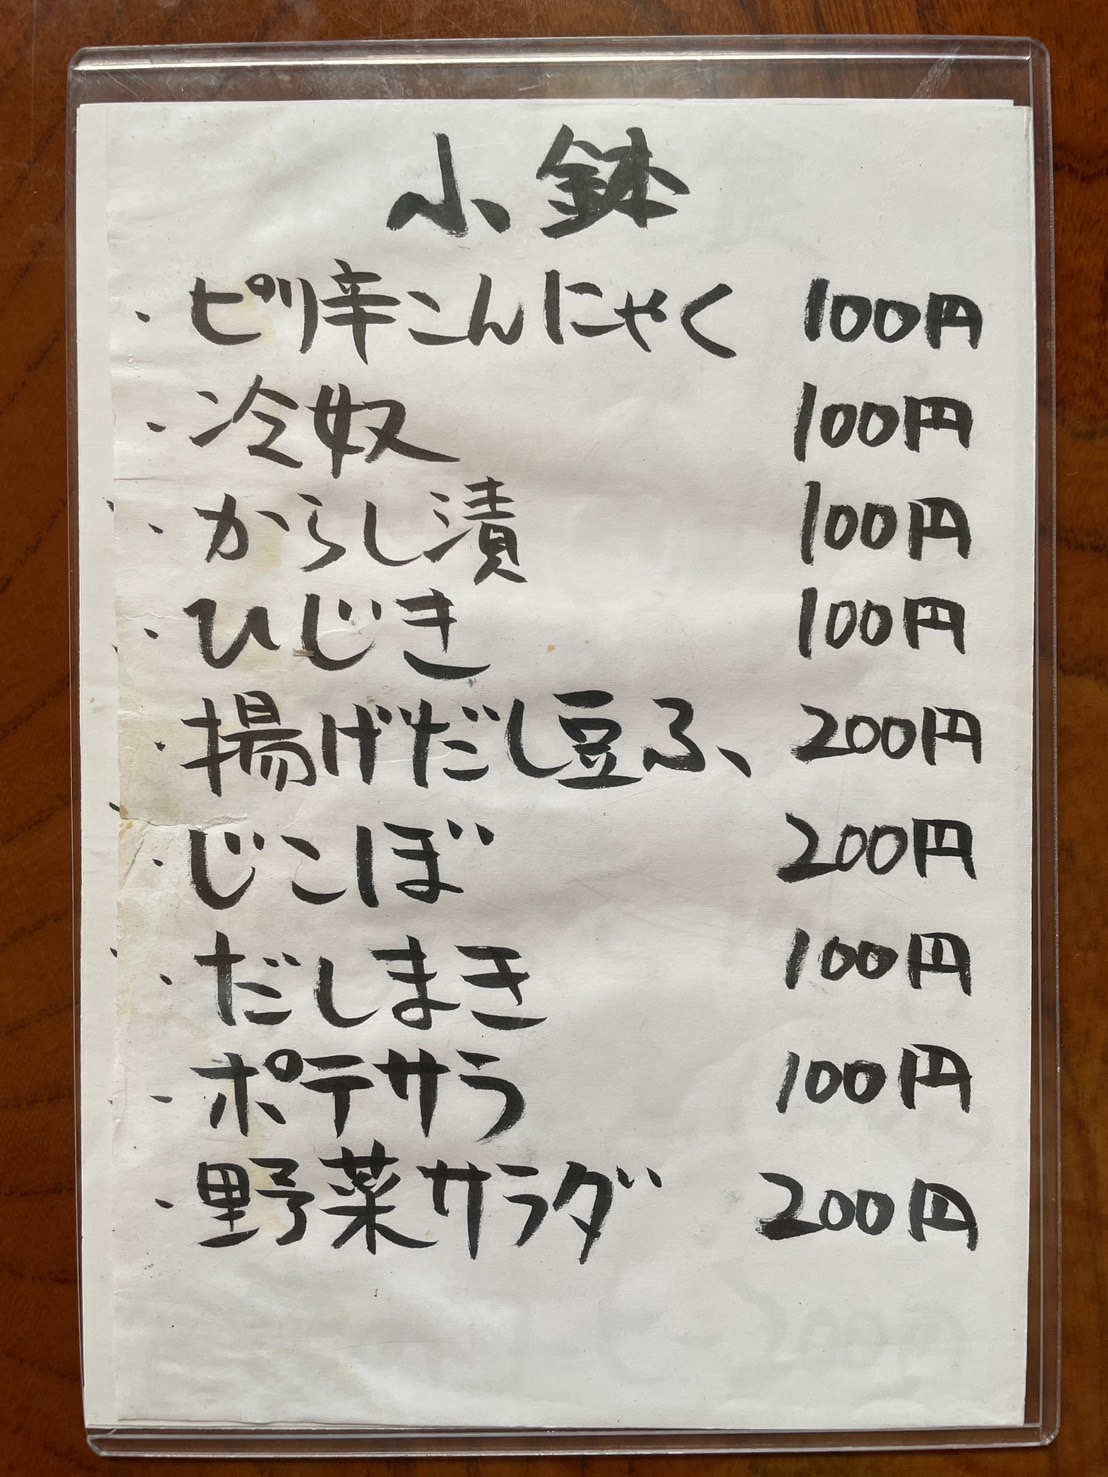 小鉢
・ピリ辛こんにゃく 100円
・冷奴 100円
・からし漬 100円
・ひじき 100円
・揚げだし豆ふ、 200円
・じこぼ 200円
・だしまき 100円
・ポテサラ 100円
・野菜サラダ 200円